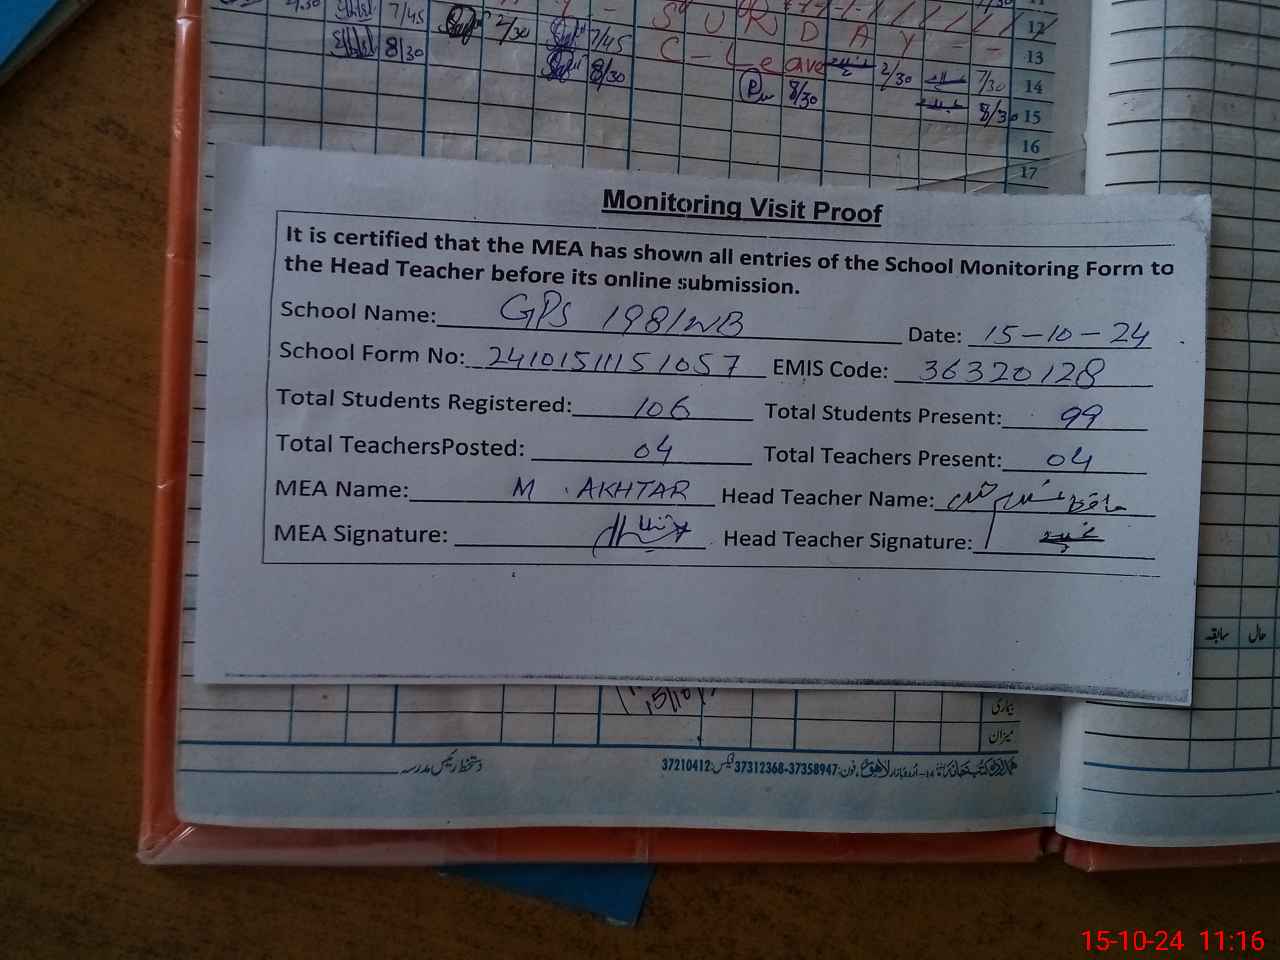 7/45
2/30
7/45
S U R D A Y - -
12
8/30
8/30
C - Leave
2/30
7/30
13
14
8/30
8/30
15
16
17
Monitoring Visit Proof
It is certified that the MEA has shown all entries of the School Monitoring Form to
the Head Teacher before its online submission.
School Name: GPS 198/WB Date: 15-10-24
School Form No: 24101511151057 EMIS Code: 36320128
Total Students Registered: 106 Total Students Present: 99
Total TeachersPosted: 04 Total Teachers Present: 04
MEA Name: M. AKHTAR Head Teacher Name:
MEA Signature: Head Teacher Signature:
سابقہ حال
15/10
بیماری
میزان
دستخط رئیس مدرسہ
37210412:فیکس 37312368-37358947:فون
15-10-24 11:16